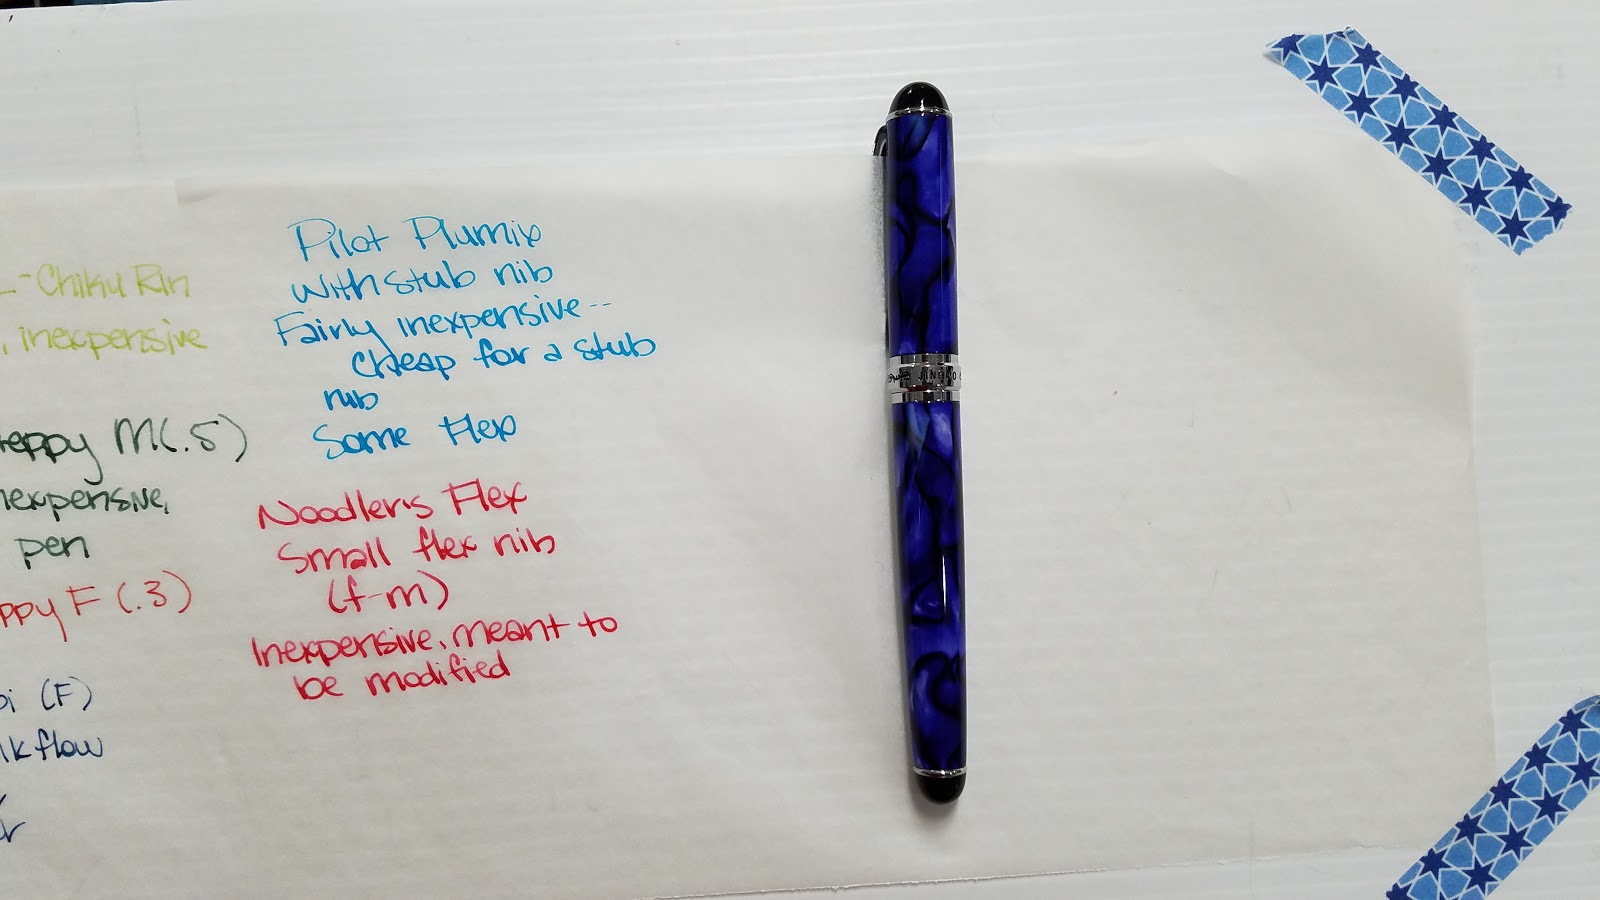 -Chiku Rin
, inexpensive
M(.5)
inexpensive,
pen
F (.3)
(F)
flow
Pilot Plumix
with stub nib
Fairly inexpensive--
Cheap for a stub
nib
Some Flex
Noodler's Flex
Small flex nib
(f-m)
Inexpensive, meant to
be modified